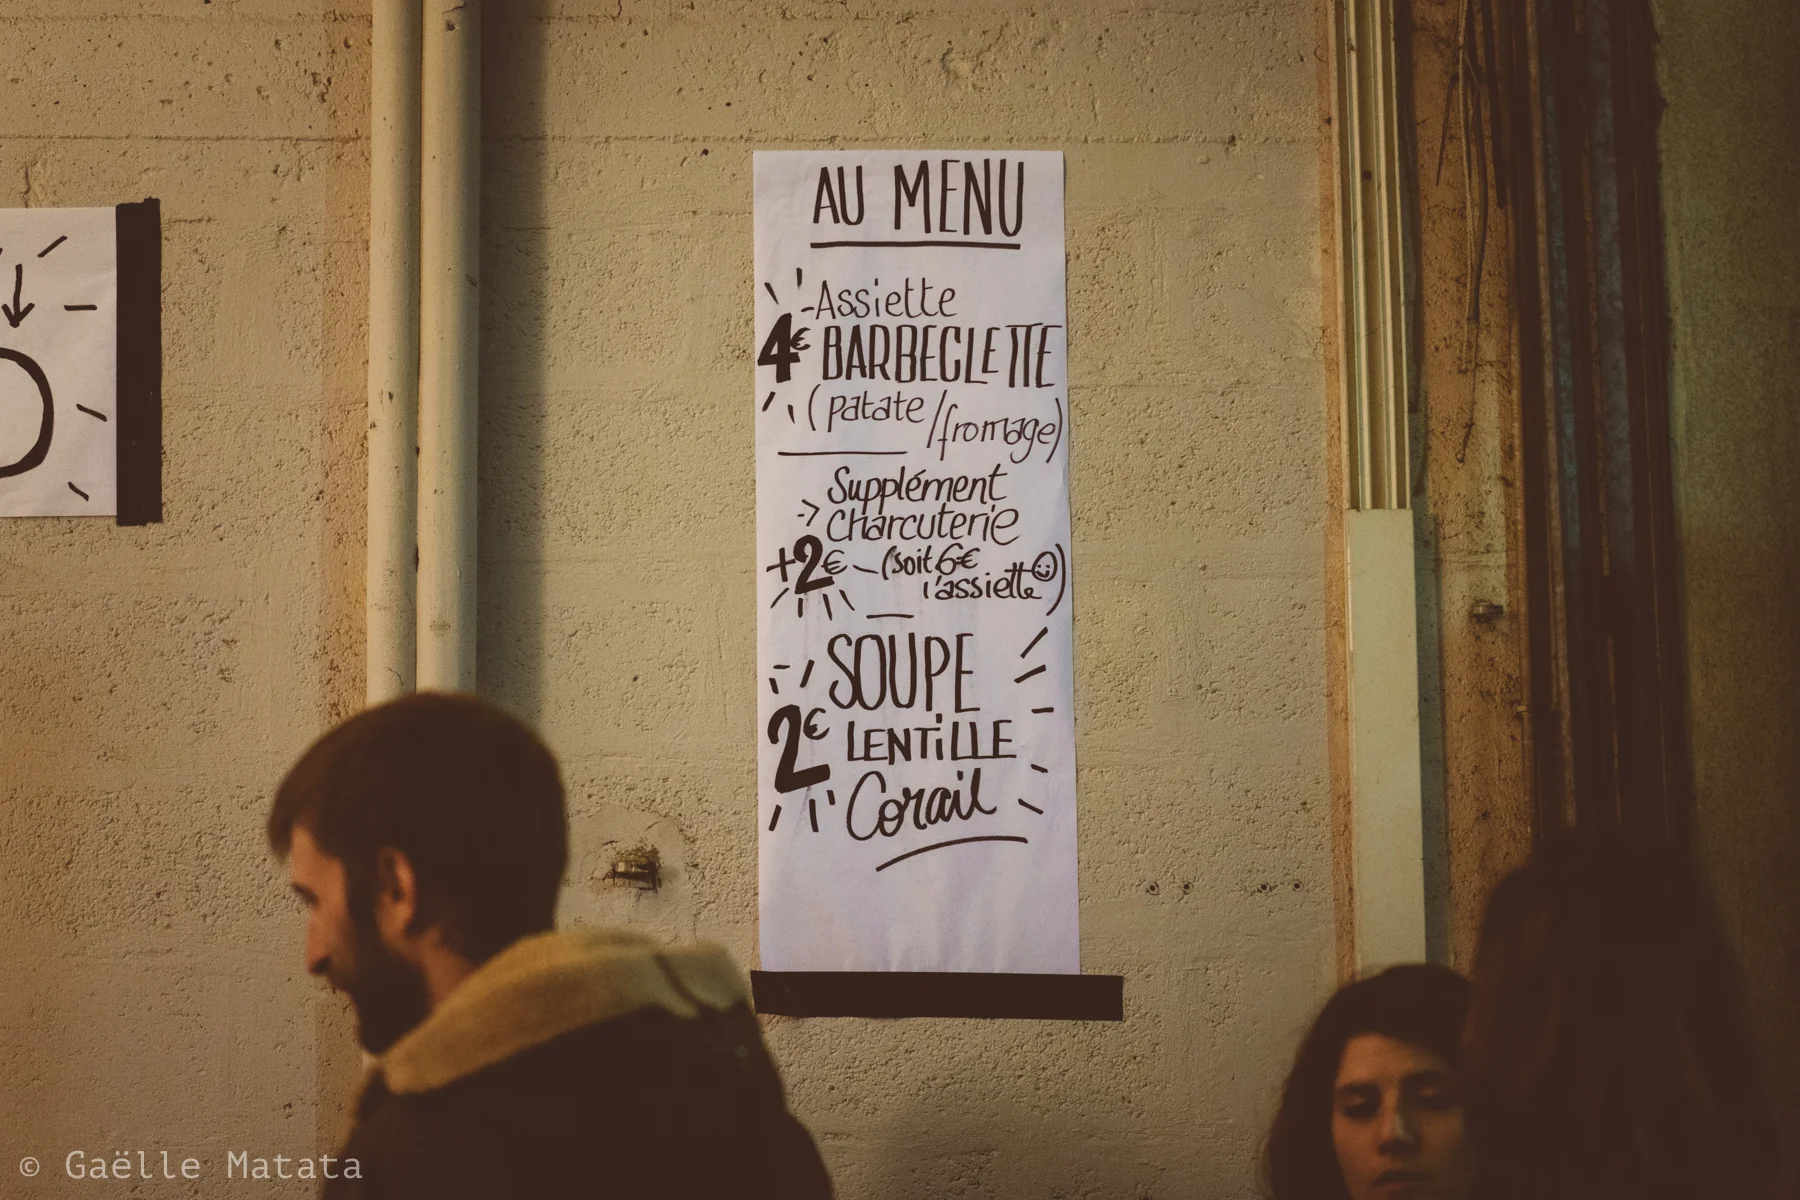 AU MENU
-Assiette
4€ BARBECLETTE
(patate/fromage)
Supplément
-> Charcuterie
+2€ - (soit 6€
l'assiette ☺)
SOUPE
2€ LENTiLLE
Corail
© Gaëlle Matata